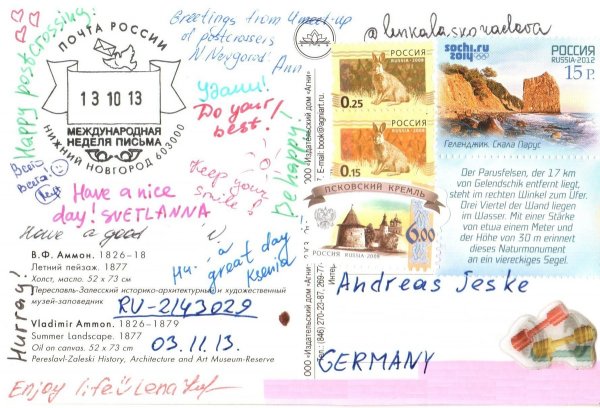 Happy postcrossing!
ПОЧТА РОССИИ
13 10 13
МЕЖДУНАРОДНАЯ
НЕДЕЛЯ ПИСЬМА
НИЖНИЙ НОВГОРОД 603000
Greetings from 4 meet-up
of postcrossers
N Novgorod. Ann
Удачи!
Do your
best!
Keep your
smile!
Be happy!
Всего
Have a nice
day! SVETLANNA
Have a good
a
great day
Ksenia
В.Ф. Аммон. 1826–18
Летний пейзаж. 1877
Холст, масло. 52 x 73 см
Переславль-Залесский историко-архитектурный и художественный
музей-заповедник
RU-2143029
Vladimir Ammon. 1826–1879
Summer Landscape. 1877
Oil on canvas. 52 x 73 cm
Pereslavl-Zaleski History, Architecture and Art Museum-Reserve
03.11.13.
Hurray!
Enjoy life Lena
© ООО «Издательский дом «Агни»
E-mail: book@agniart.ru
ООО «Издательский дом «Агни»
Тел.: (846) 270-23-87, 269-7
Интер
РОССИЯ
RUSSIA · 2008
0.25
РОССИЯ
RUSSIA · 2008
0.15
ПСКОВСКИЙ КРЕМЛЬ
6.00
РОССИЯ
RUSSIA 2009
sochi.ru
2014
РОССИЯ
RUSSIA·2012
15 р.
Геленджик. Скала Парус
Der Parusfelsen, der 17 km
von Gelendschik entfernt liegt,
steht im rechten Winkel zum Ufer.
Drei Viertel der Wand liegen
im Wasser. Mit einer Stärke
von etwa einem Meter und
der Höhe von 30 m erinnert
dieses Naturmonument
an ein viereckiges Segel.
Andreas Jeske
GERMANY